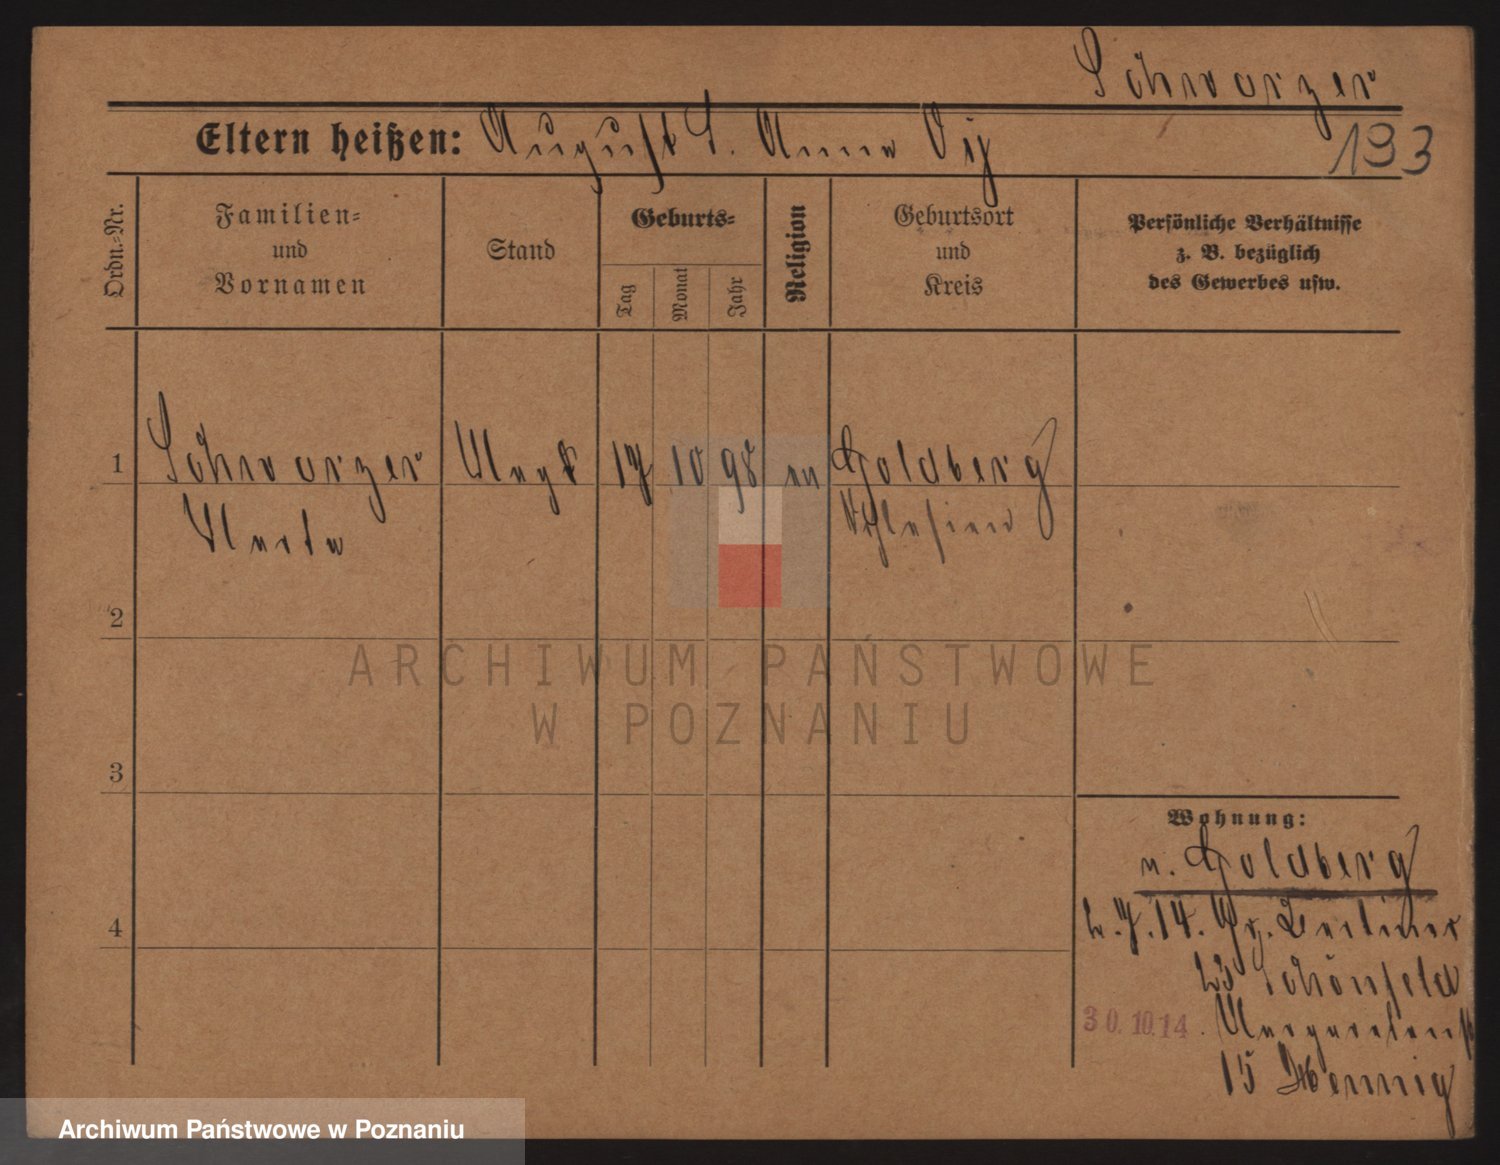 Schwarzer
Eltern heißen: August S. Anna
193
Ordn.-Nr.
Familien-
und
Vornamen
Stand
Geburts-
Tag
Monat
Jahr
Religion
Geburtsort
und
Kreis
Persönliche Verhältnisse
z. B. bezüglich
des Gewerbes usw.
1 Schwarzer Magd 17 10 98 Goldberg
Schlesien
2
3
4
Wohnung:
n. Goldberg
2.7.14. Gr. Berliner
23 Schönfeld
30.10.14. Margaretenst
15 Hennig
ARCHIWUM PAŃSTWOWE
W POZNANIU
Archiwum Państwowe w Poznaniu